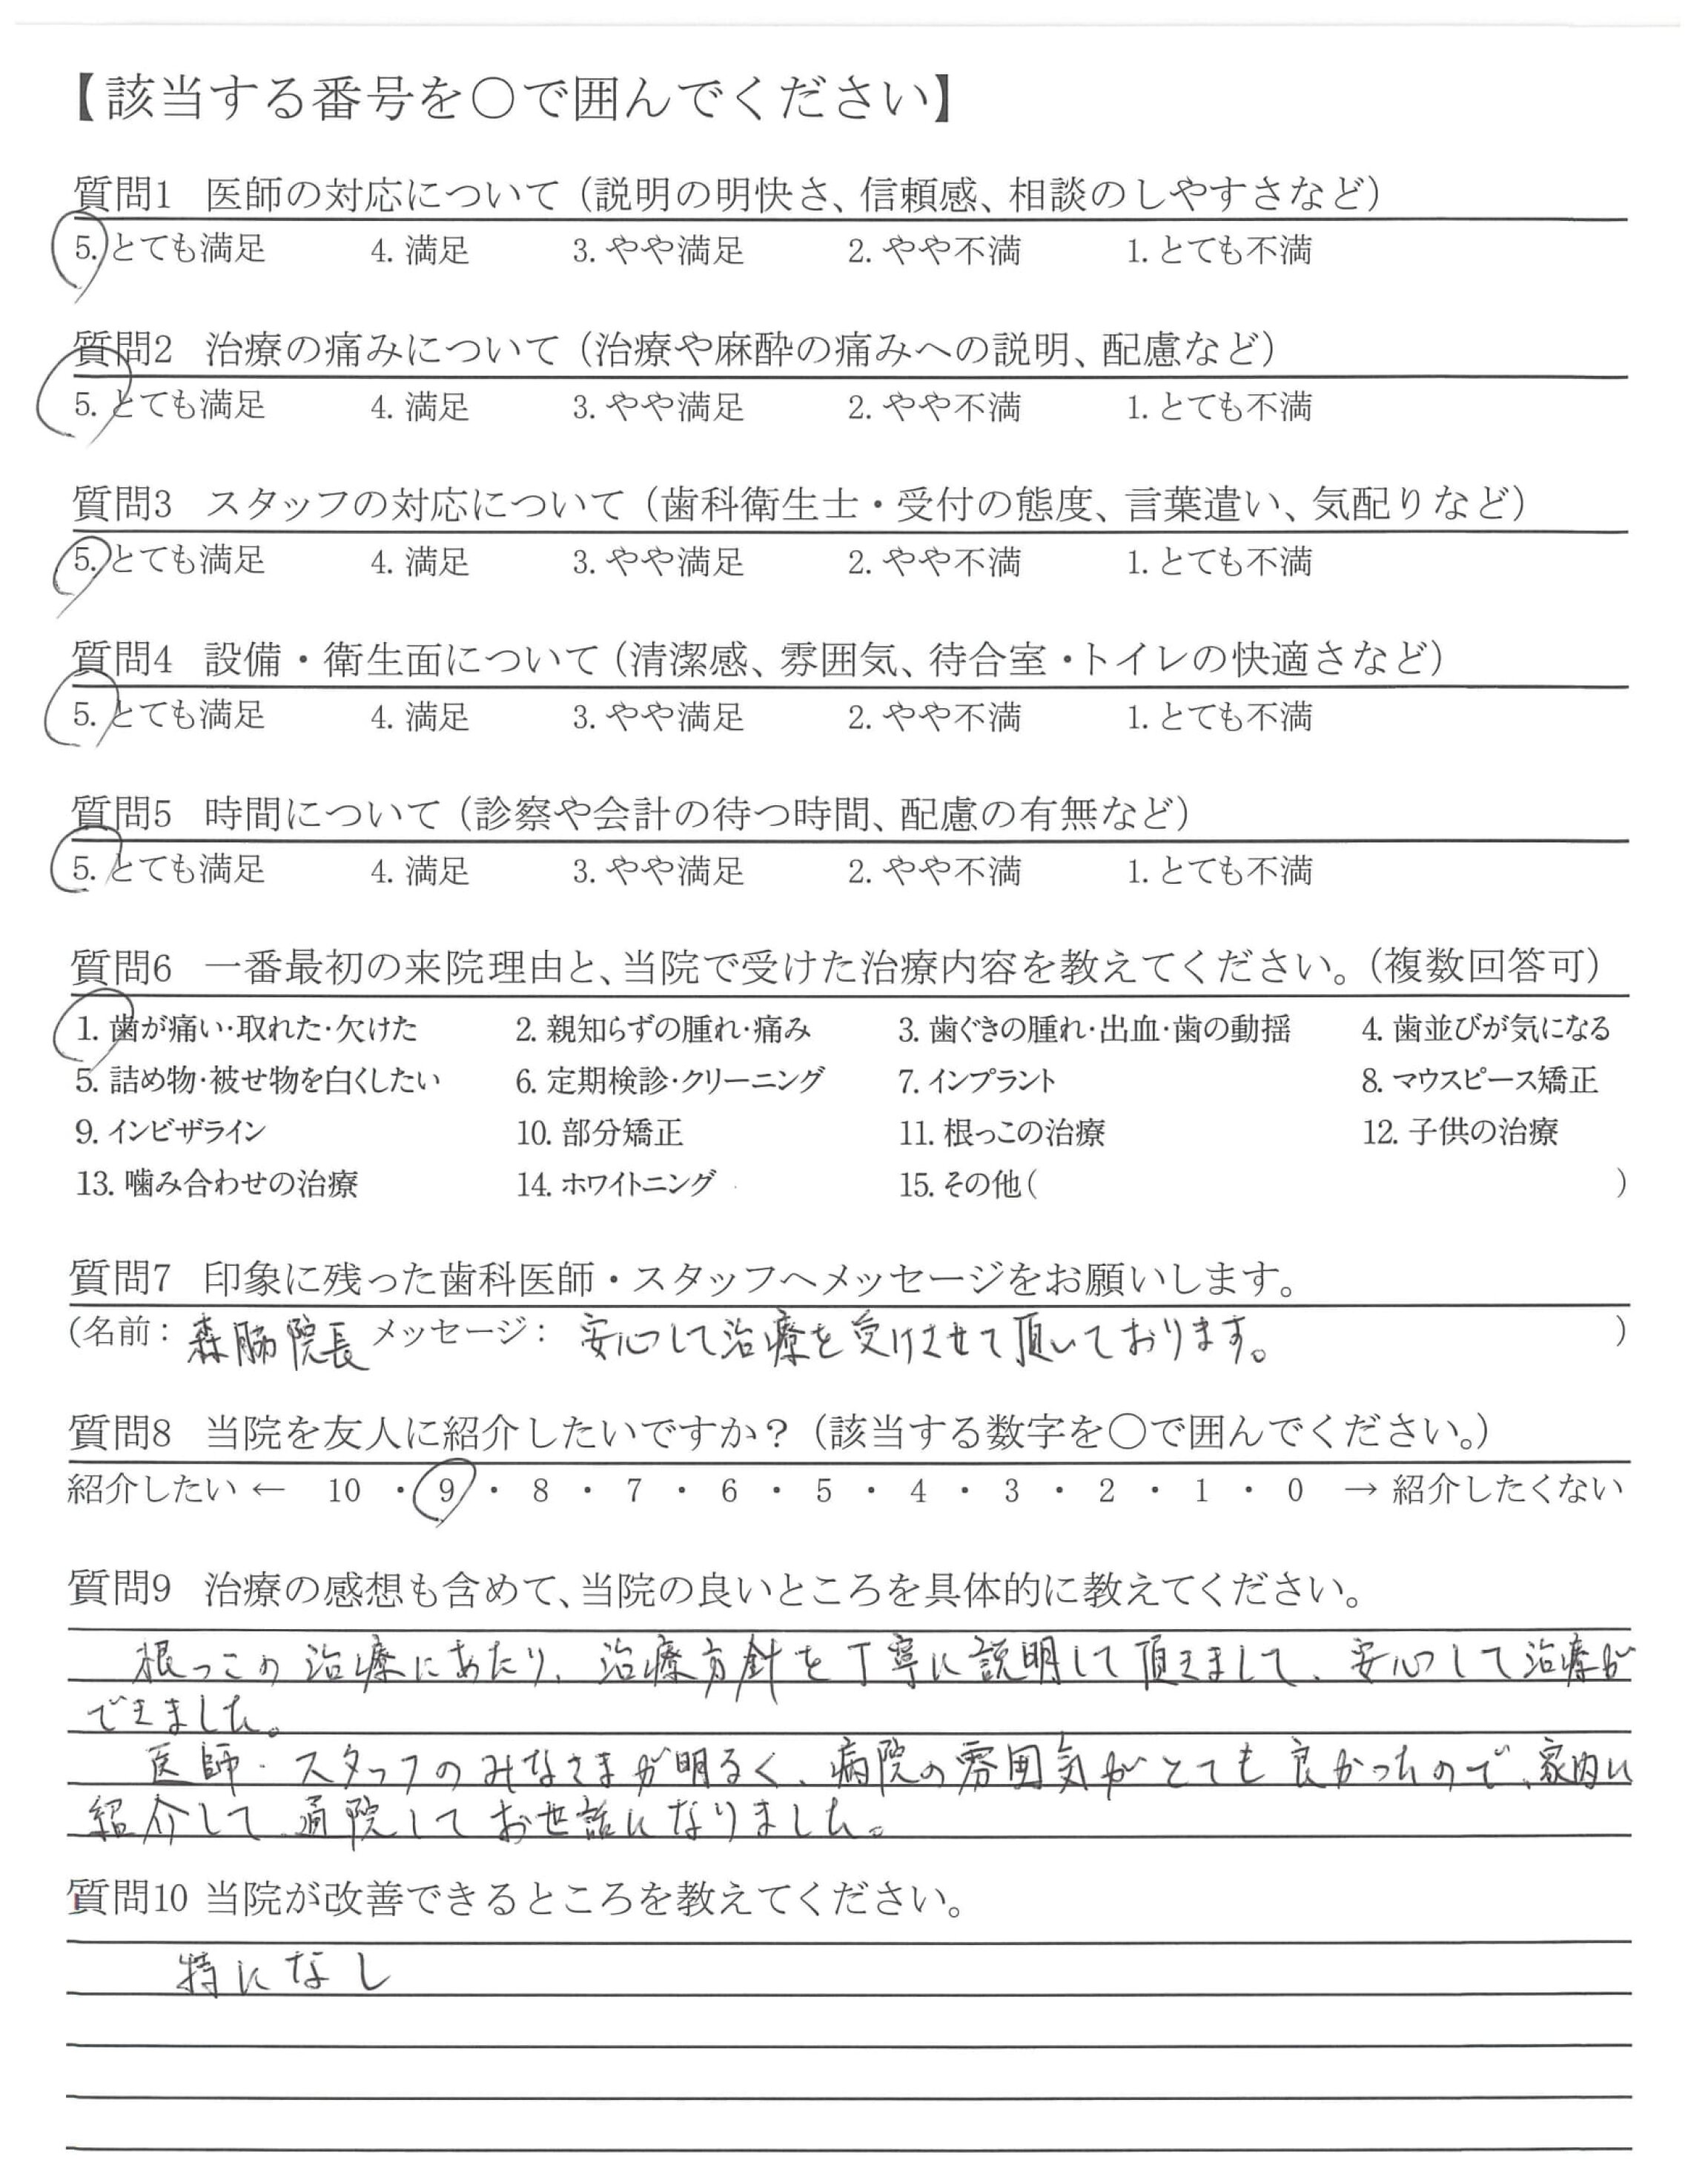 【該当する番号を○で囲んでください】
質問1 医師の対応について（説明の明快さ、信頼感、相談のしやすさなど）
5. とても満足 4. 満足 3. やや満足 2. やや不満 1. とても不満
質問2 治療の痛みについて（治療や麻酔の痛みへの説明、配慮など）
5. とても満足 4. 満足 3. やや満足 2. やや不満 1. とても不満
質問3 スタッフの対応について（歯科衛生士・受付の態度、言葉遣い、気配りなど）
5. とても満足 4. 満足 3. やや満足 2. やや不満 1. とても不満
質問4 設備・衛生面について（清潔感、雰囲気、待合室・トイレの快適さなど）
5. とても満足 4. 満足 3. やや満足 2. やや不満 1. とても不満
質問5 時間について（診察や会計の待つ時間、配慮の有無など）
5. とても満足 4. 満足 3. やや満足 2. やや不満 1. とても不満
質問6 一番最初の来院理由と、当院で受けた治療内容を教えてください。（複数回答可）
1. 歯が痛い・取れた・欠けた 2. 親知らずの腫れ・痛み 3. 歯ぐきの腫れ・出血・歯の動揺 4. 歯並びが気になる
5. 詰め物・被せ物を白くしたい 6. 定期検診・クリーニング 7. インプラント 8. マウスピース矯正
9. インビザライン 10. 部分矯正 11. 根っこの治療 12. 子供の治療
13. 噛み合わせの治療 14. ホワイトニング 15. その他（ ）
質問7 印象に残った歯科医師・スタッフへメッセージをお願いします。
（名前： 森脇院長 メッセージ： 安心して治療を受けさせて頂いております。 ）
質問8 当院を友人に紹介したいですか？（該当する数字を○で囲んでください。）
紹介したい ← 10 ・ 9 ・ 8 ・ 7 ・ 6 ・ 5 ・ 4 ・ 3 ・ 2 ・ 1 ・ 0 → 紹介したくない
質問9 治療の感想も含めて、当院の良いところを具体的に教えてください。
根っこの治療にあたり、治療方針を丁寧に説明して頂きまして、安心して治療が
できました。
医師・スタッフのみなさまが明るく、病院の雰囲気がとても良かったので、家内に
紹介して、通院してお世話になりました。
質問10 当院が改善できるところを教えてください。
特になし